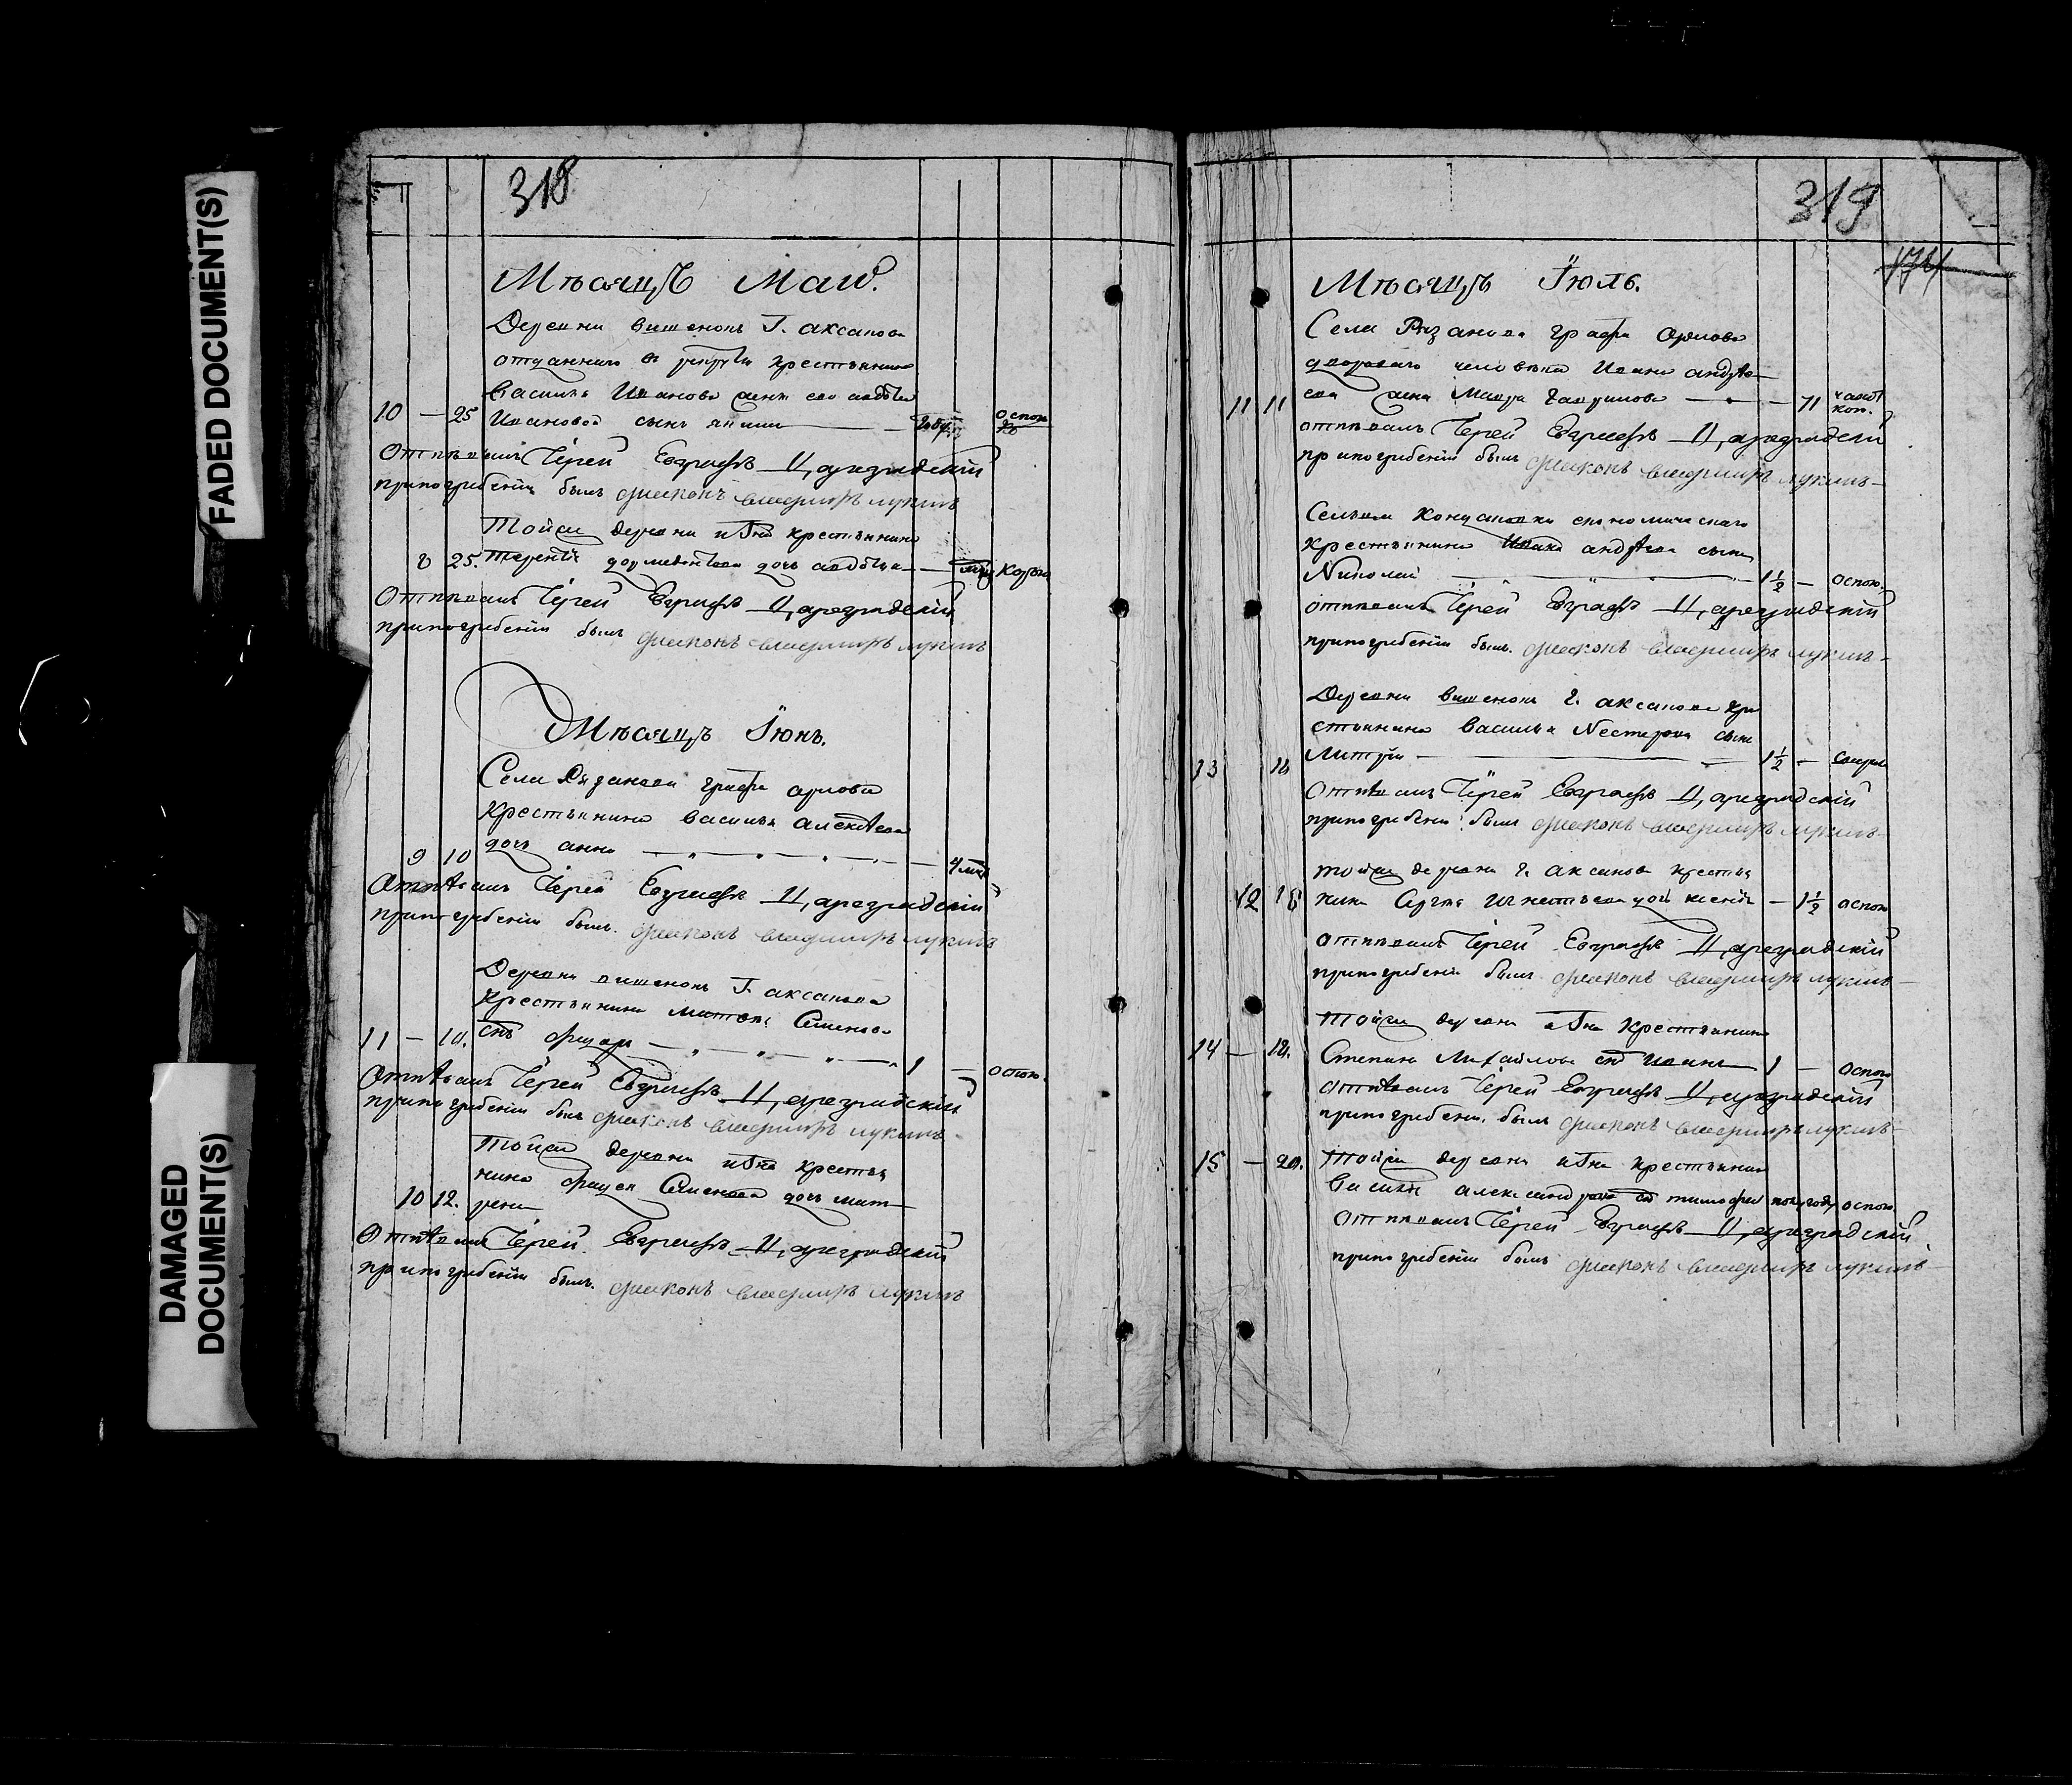 FADED DOCUMENT(S)
DAMAGED
DOCUMENT(S)
318
Мѣсяцъ Маій.
Деревни вишенокъ Г. аксакова
отданнаго в рекруты крестьянина
Василья Иванова жены его авдотьи
10 — 25 Ивановой сынъ оспою
Отпѣвалъ Іерей Евграфъ Цареградскій
при погребеніи былъ диаконъ владимиръ лукинъ
Тойже деревни крестьянина
8 25. терентія дормедонтова дочь авдотья — корью
Отпѣвалъ Іерей Евграфъ Цареградскій
при погребеніи былъ диаконъ владимиръ лукинъ
Мѣсяцъ Іюнь.
Села Рязанова графа орлова
крестьянина василья алексѣева
9 10 дочь анна — 4
Отпѣвалъ Іерей Евграфъ Цареградскій
при погребеніи былъ диаконъ владимиръ лукинъ
Деревни вишенокъ Г. аксакова
крестьянина Семенова
11 — 10. снъ — 1 — оспою.
Отпѣвалъ Іерей Евграфъ Цареградскій
при погребеніи былъ диаконъ владимиръ лукинъ
Тойже деревни крестья
нина Семенова дочь мат
10 12. рена
Отпѣвалъ Іерей Евграфъ Цареградскій
при погребеніи былъ диаконъ владимиръ лукинъ
319
Мѣсяцъ Іюль.
Села Рязанова графа Орлова
двороваго человѣка Ивана андрѣе
11 11 ва жена Мавра Гаврилова — 71
отпѣвалъ Іерей Евграфъ Цареградскій
при погребеніи былъ диаконъ владимиръ лукинъ
Сельца экономическаго
крестьянина андрѣева сынъ
Николай — 1½ — оспою
отпѣвалъ Іерей Евграфъ Цареградскій
при погребеніи былъ диаконъ владимиръ лукинъ
Деревни вишенокъ Г. аксакова кре
стьянина василья Нестерова сынъ
13
Отпѣвалъ Іерей Евграфъ Цареградскій
при погребеніи былъ диаконъ владимиръ лукинъ
тойже деревни Г. аксакова крестья
12 18 нина Сергѣя игнатьева дочь ксенія — 1½ оспою
отпѣвалъ Іерей Евграфъ Цареградскій
при погребеніи былъ диаконъ владимиръ лукинъ
Тойже деревни крестьянина
14 — Степана Михайлова снъ — 1 — оспою
отпѣвалъ Іерей Евграфъ Цареградскій
при погребеніи былъ диаконъ владимиръ лукинъ
15 — 20. Тойже деревни крестьянина
Василья александрова снъ тимофей полугоду оспою
отпѣвалъ Іерей Евграфъ Цареградскій
при погребеніи былъ диаконъ владимиръ лукинъ